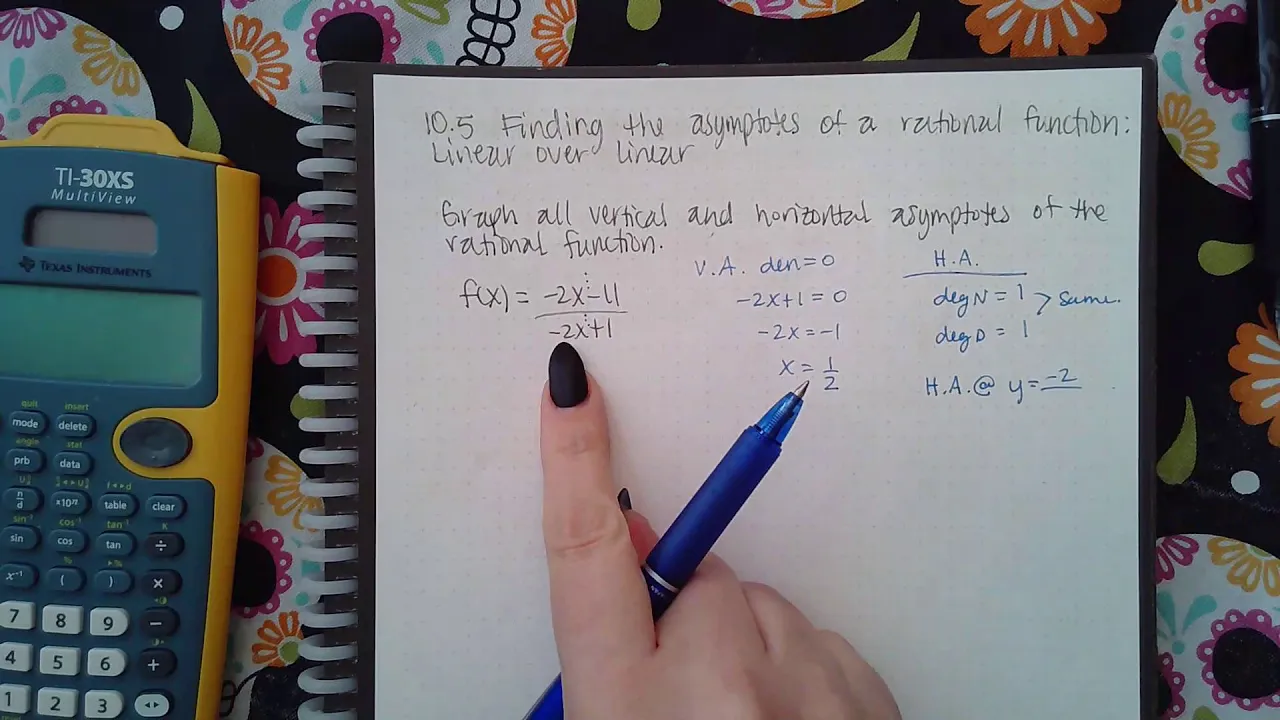 10.5 Finding the asymptotes of a rational function:
Linear over linear
Graph all vertical and horizontal asymptotes of the
rational function.
f(x) = -2x-11
-2x+1
V.A. den=0
-2x+1=0
-2x=-1
x= 1
2
H.A.
degN=1 > same.
degD=1
H.A.@ y= -2
TI-30XS
MultiView
TEXAS INSTRUMENTS
quit insert
mode delete
angle stat
prb data
n/d ×10ⁿ table clear
sin⁻¹ cos⁻¹ tan⁻¹ K
sin cos tan ÷
x⁻¹ ( ) ×
7 8 9 −
4 5 6 +
1 2 3